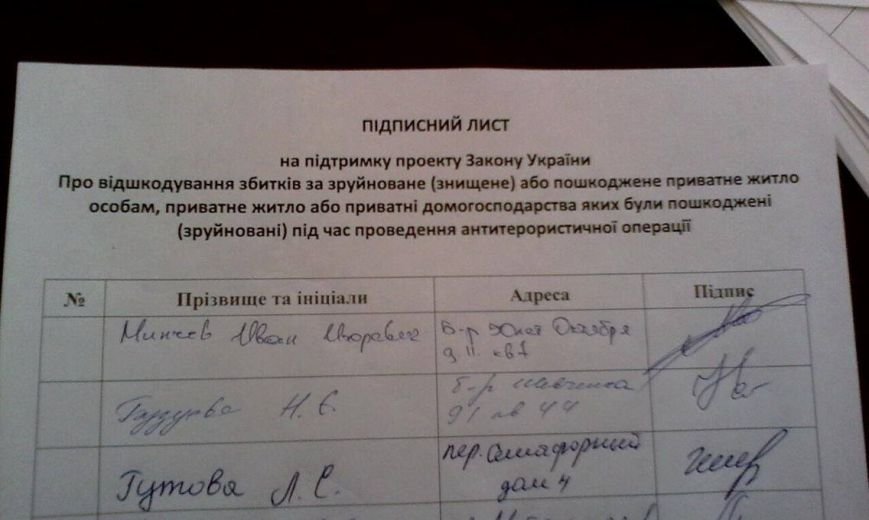 ПІДПИСНИЙ ЛИСТ
на підтримку проекту Закону України
Про відшкодування збитків за зруйноване (знищене) або пошкоджене приватне житло
особам, приватне житло або приватні домогосподарства яких були пошкоджені
(зруйновані) під час проведення антитерористичної операції
№ Прізвище та ініціали Адреса Підпис
Иван Игоревич Б-р Октября
д 11 кв 7
Н. Е. б-р Шевченка
91 кв 44
Гутова Л. С. пер. Семафорный
дом 4